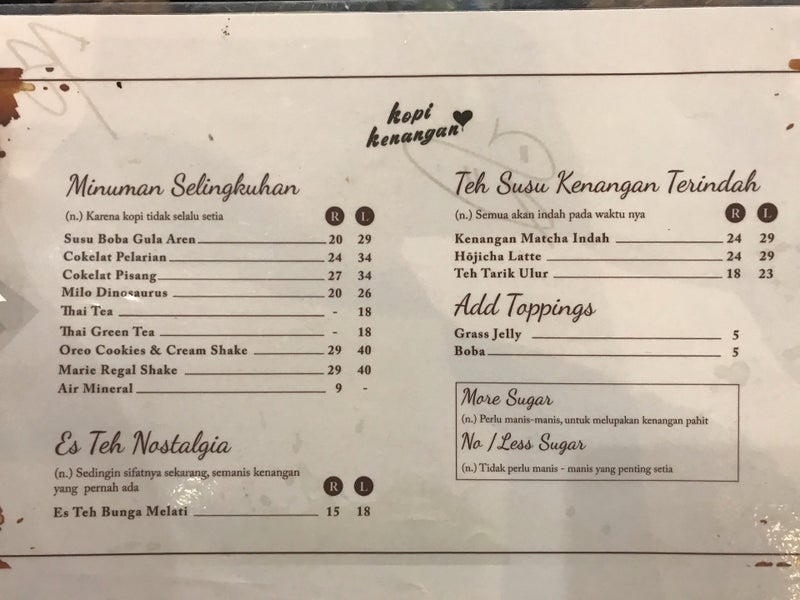 kopi
kenangan
Minuman Selingkuhan
(n.) Karena kopi tidak selalu setia R L
Susu Boba Gula Aren 20 29
Cokelat Pelarian 24 34
Cokelat Pisang 27 34
Milo Dinosaurus 20 26
Thai Tea - 18
Thai Green Tea - 18
Oreo Cookies & Cream Shake 29 40
Marie Regal Shake 29 40
Air Mineral 9 -
Es Teh Nostalgia
(n.) Sedingin sifatnya sekarang, semanis kenangan
yang pernah ada R L
Es Teh Bunga Melati 15 18
Teh Susu Kenangan Terindah
(n.) Semua akan indah pada waktu nya R L
Kenangan Matcha Indah 24 29
Hōjicha Latte 24 29
Teh Tarik Ulur 18 23
Add Toppings
Grass Jelly 5
Boba 5
More Sugar
(n.) Perlu manis-manis, untuk melupakan kenangan pahit
No / Less Sugar
(n.) Tidak perlu manis - manis yang penting setia